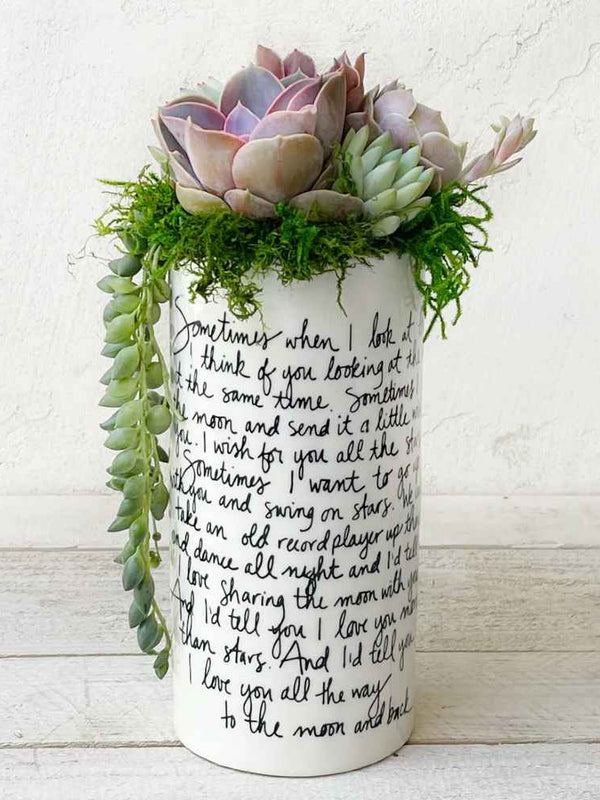 Sometimes when I look at
I think of you looking at the
at the same time. Sometimes I
the moon and send it a little
you. I wish for you all the
Sometimes I want to go
with you and swing on stars. We
take an old record player up
and dance all night and I'd tell
I love sharing the moon with you
And I'd tell you I love you
than stars. And I'd tell you
I love you all the way
to the moon and back